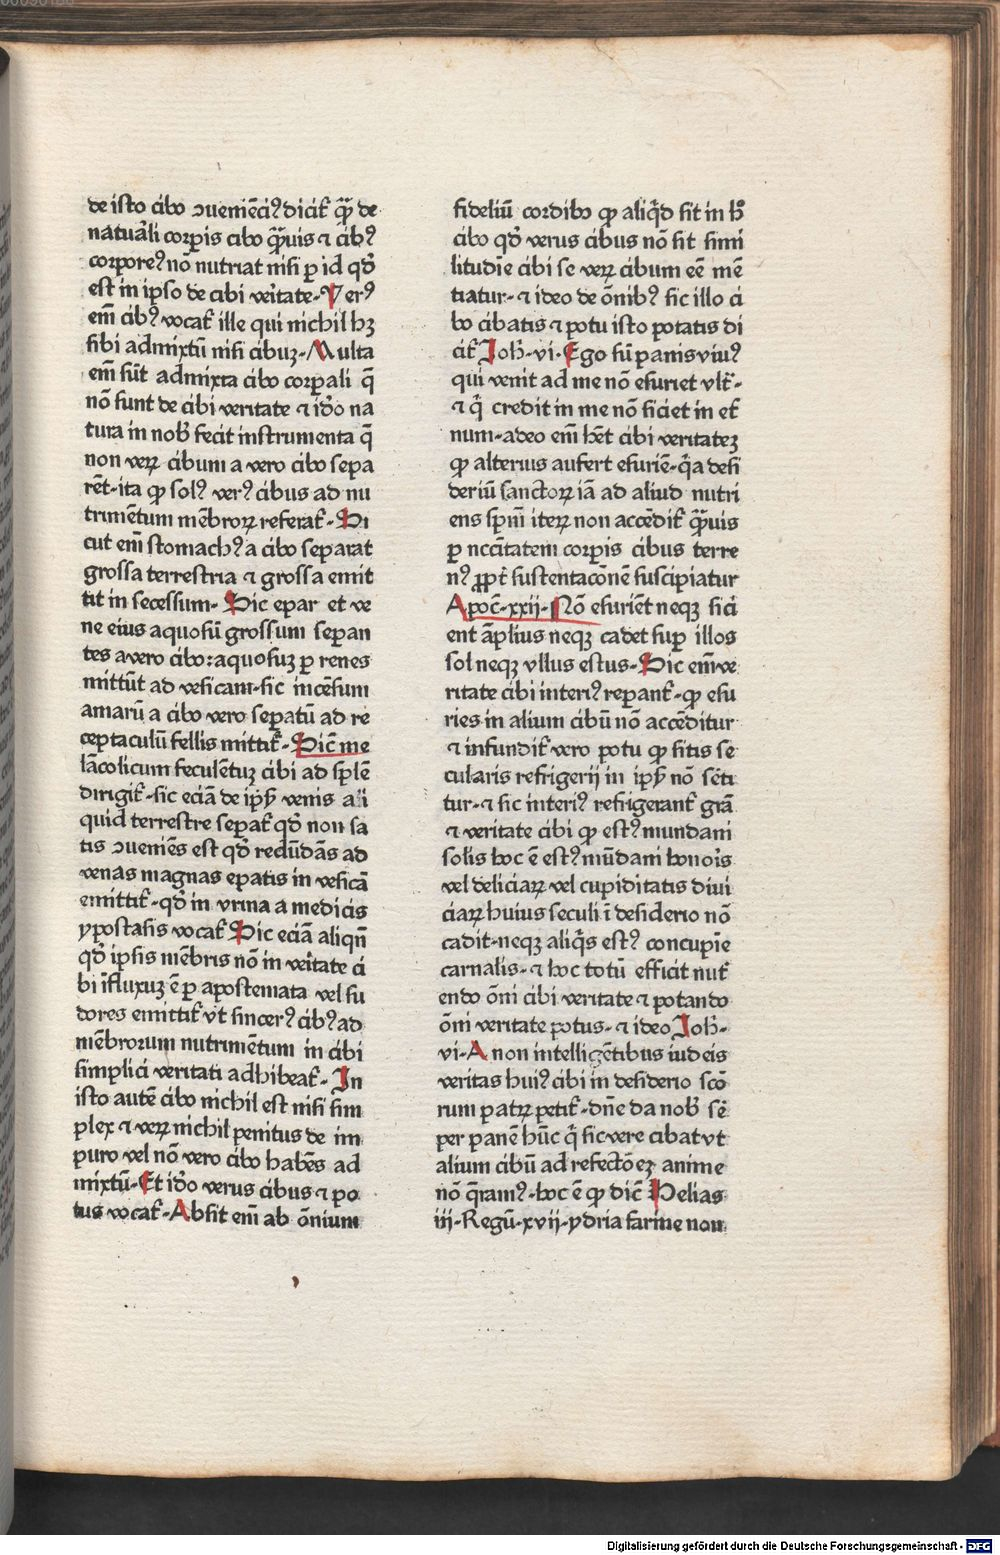 de isto cibo ↄueniēciꝰ dicit᷑ qꝫ̄ de
natural̓i corꝑis cibo qꝫ̄uis ⁊ cibꝰ
corporeꝰ nō nutriat nisi ꝑ id qd̓
est in ipso de cibi veritate. Verꝰ
em̄ cibꝰ vocat᷑ ille qui nichil hꝫ
sibi admixtū nisi cibuꝫ. Multa
em̄ sūt admixta cibo corpali q̄
nō sunt de cibi veritate ⁊ id̓o na
tura in nob̓ fecit instrumenta q̄
non veꝝ cibum a vero cibo sepa
rēt. ita ꝙ solꝰ verꝰ cibus ad nu
trimētum mēbroꝝ referat᷑. Si
cut em̄ stomachꝰ a cibo separat
grossa terrestria ⁊ grossa emit
tit in secessum. Sic epar et ve
ne eius aquosū grossum separan
tes a vero cibo: aquosuꝫ ꝑ renes
mittūt ad vesicam. sic incēsum
amarū a cibo vero sepatū ad re
ceptaculū fellis mittit᷑. Sic̄ me
lācolicum feculētuꝫ cibi ad splē
dirigit᷑. sic eciā de ip̄s venis ali
quid terrestre sepat᷑ qd̓ non sa
tis ↄueniēs est qd̓ redūdās ad
venas magnas epatis in vesicā
emittit᷑. qd̓ in vrina a medicis
ypostasis vocat᷑ Sic eciā aliqn̄
qd̓ ipsis mēbris nō in veritate ci
bi īfluxuꝫ ē ꝑ apostemata vel su
dores emittit᷑ vt sincerꝰ cibꝰ ad
mēbrorum nutrimētum in cibi
simplici veritati adhibeat᷑. In
isto autē cibo nichil est nisi sim
plex ⁊ veꝝ nichil penitus de im
puro vel nō vero cibo habēs ad
mixtū. Et id̓o verus cibus ⁊ po
tus vocat᷑. Absit em̄ ab ōnium
fideliū cordibꝰ ꝙ aliqd̓ sit in hͦ
cibo qd̓ verus cibus nō sit simi
litudīe cibi se veꝝ cibum eē mē
tiatur. ⁊ ideo de ōnibꝰ sic illo ci
bo cibatis ⁊ potu isto potatis di
cit᷑ Joh̄. vi. Ego sū panis viuꝰ
qui venit ad me nō esuriet vlt᷑.
⁊ q̄ credit in me nō siciet in et᷑
num. adeo em̄ hēt cibi veritateꝫ
ꝙ alterius aufert esuriē. q̄a desi
deriū sanctoꝝ iā ad aliud nutri
ens sp̄m iteꝝ non accēdit᷑ qꝫ̄uis
ꝑ nccītatem corꝑis cibus terre
nꝰ ꝓpt᷑ sustentacōnē suscipiatur
Apoc̄. xxij. Nō esuriēt neqꝫ sici
ent āplius neqꝫ cadet suꝑ illos
sol neqꝫ vllus estus. Sic em̄ ve
ritate cibi interiꝰ repant᷑. ꝙ esu
ries in alium cibū nō accēditur
⁊ infundit᷑ vero potu ꝙ sitis se
cularis refrigerij in ip̄s nō sēti
tur. ⁊ sic interiꝰ refrigerant᷑ grā
⁊ veritate cibi ꝙ estꝰ mundani
solis hoc ē estꝰ mūdani honoris
vel deliciaꝝ vel cupiditatis diui
ciaꝝ huius seculi ī desiderio nō
cadit. neqꝫ aliq̄s estꝰ concupīe
carnalis. ⁊ hoc totū efficit nut᷑
endo ōni cibi veritate ⁊ potando
ōni veritate potus. ⁊ ideo Joh̄.
vi. A non intelligētibus iudeis
veritas huiꝰ cibi in desiderio scō
rum patꝝ petit᷑. dn̄e da nob̓ sē
per panē hūc q̄ sic vere cibat vt
alium cibū ad refectōeꝫ anime
nō q̄ramꝰ. hoc ē ꝙ dic̄ Helias
iij. Regū. xvij. ydria farine non